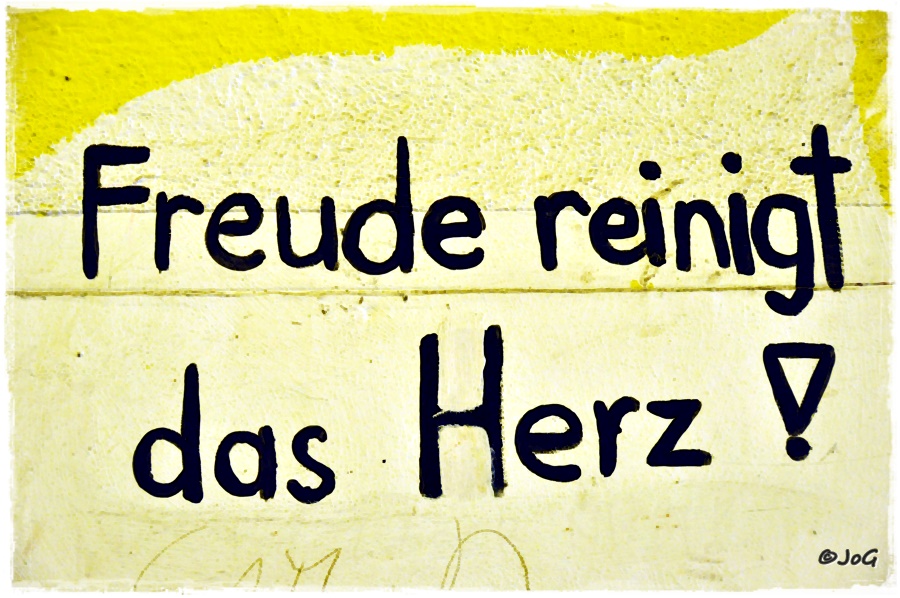 Freude reinigt
das Herz!
©JoG